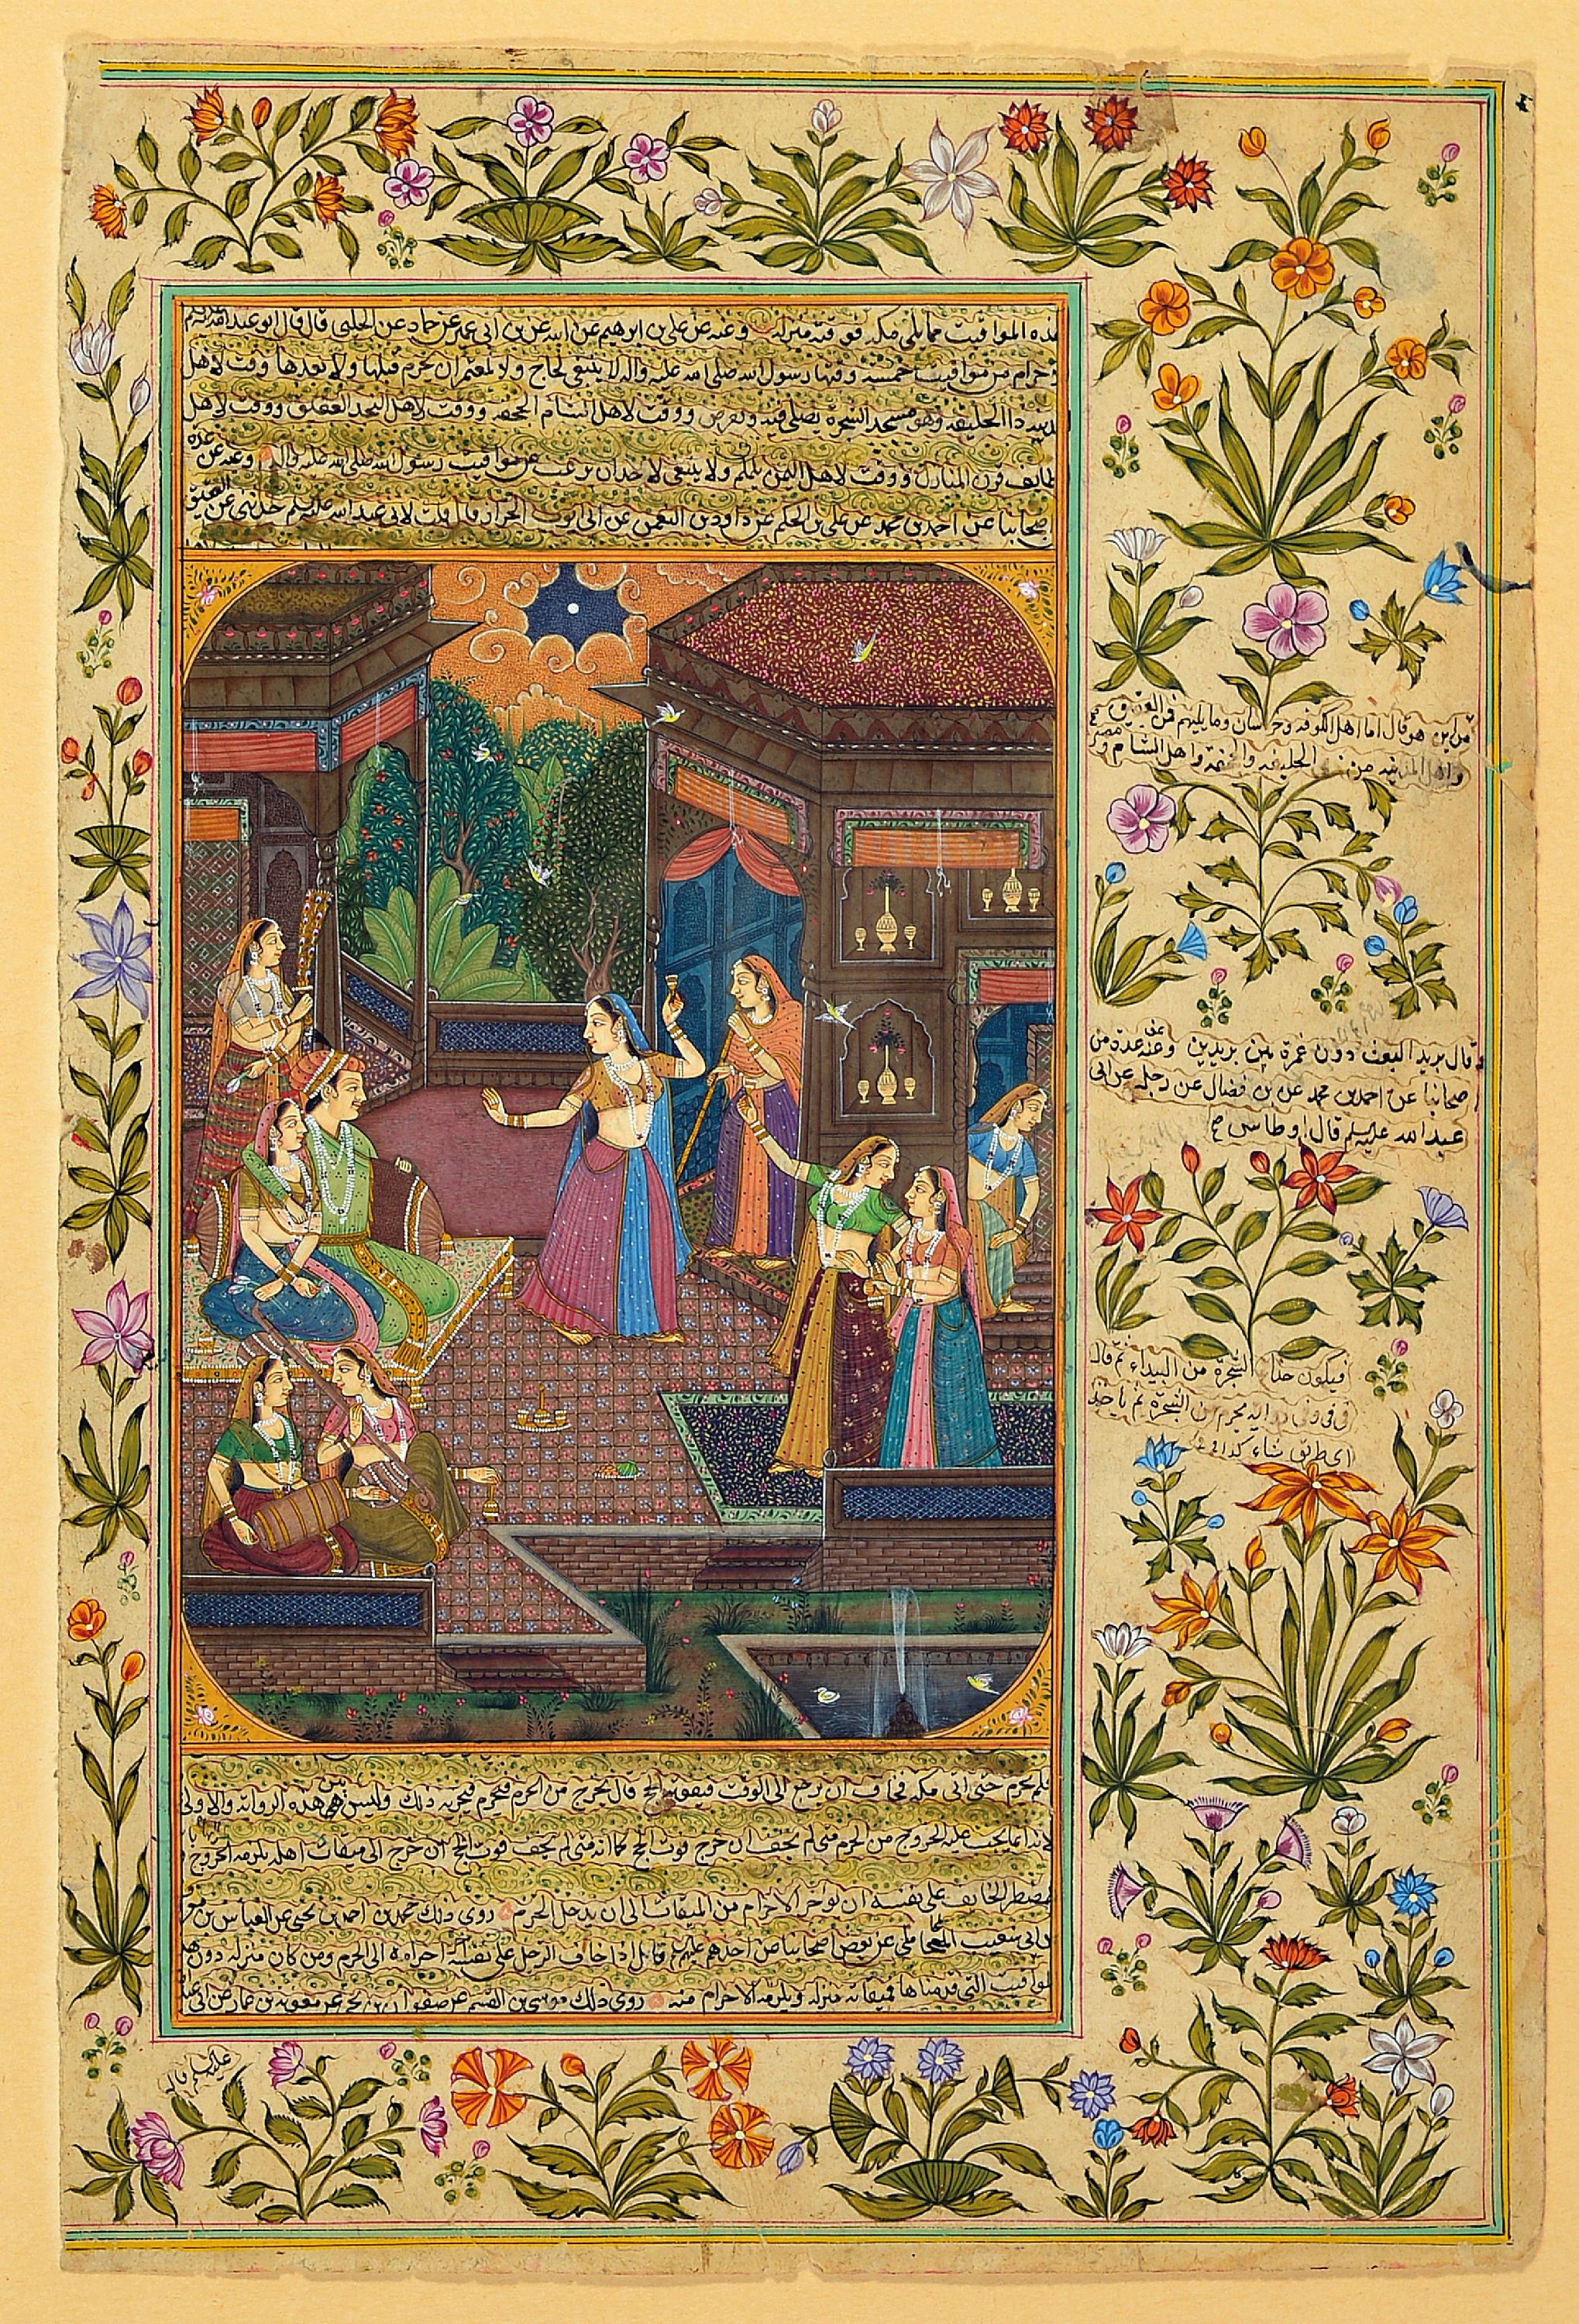 هذه المواقيت مما يلي مكة فوقته منزله وعنه عن علي بن ابرهيم عن ابيه عن بن ابي عمير عن حماد عن الحلبي قال قال ابو عبد الله
الاحرام من مواقيت خمسة وقتها رسول الله صلى الله عليه واله لا ينبغي لحاج ولا لمعتمر ان يحرم قبلها ولا بعدها وقت لاهل
المدينة ذا الحليفة وهو مسجد الشجرة يصلي فيه ويفرض ووقت لاهل الشام الجحفة ووقت لاهل النجد العقيق ووقت لاهل
الطايف قرن المنازل ووقت لاهل اليمن يلملم ولا ينبغي لاحد ان يرغب عن مواقيت رسول الله صلى الله عليه واله وعنه عن عدة
اصحابنا عن احمد بن محمد عن علي بن الحكم عن داود بن النعمن عن ابي ايوب الخراز قال قلت لابي عبد الله عليه السلم حدثني عن العقيق
من اين هو قال اما اهل الكوفة وخراسان وما يليهم فمن العقيق
واهل المدينة من الحليفة والجحفة واهل الشام ومصر
وقال بريد البعث دون غمرة ببريدين وعنه عن عدة من
اصحابنا عن احمد بن محمد عن بن فضال عن رجل عن ابي
عبد الله عليه السلم قال اوطاس
فيكون حذاء الشجرة من البيداء ثم قال
وفي رواية يحرم من الشجرة ثم ياخذ
اي طريق شاء
فلم يحرم حتى اتى مكة فخاف ان يرجع الى الوقت فيفوته الحج قال يخرج من الحرم فيحرم فيجزيه ذلك وليس بين هذه الرواية والاولى
لانه انما يجب عليه الخروج من الحرم متى لم يخف ان خرج فوت الحج كما انه متى لم يخف فوت الحج ان خرج الى ميقات اهله يلزمه الخروج
المضطر الخايف على نفسه ان يؤخر الاحرام من الميقات الى ان يدخل الحرم روى ذلك محمد بن احمد بن يحيى عن العباس بن
عن ابي شعيب المحاملي عن بعض اصحابنا عن احدهم عليهم قال اذا خاف الرجل على نفسه اخر احرامه الى الحرم ومن كان منزله دون هذه
المواقيت التي قدمناها فميقاته منزله ويلزمه الاحرام منه روى ذلك موسى بن القسم عن صفوان بن يحيى عن معوية بن عمار عن ابي عبد
عليه السلم قال